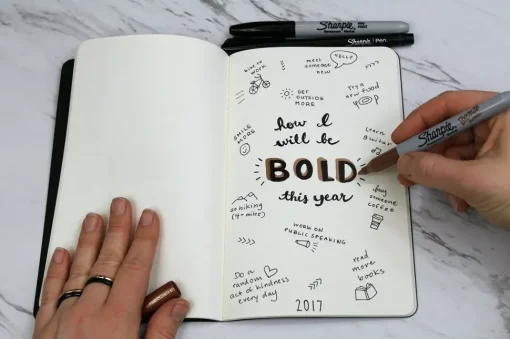 Sharpie
Sharpie Pen
bike to
work
meet
someone
new
HELLO
GET
OUTSIDE
MORE
try a
new food
SMILE
MORE
how I
will be
BOLD
this year
learn
guitar
Sharpie
go hiking
(4+ miles)
buy
someone
COFFEE
WORK ON
PUBLIC SPEAKING
Do a
random
act of kindness
every day
read
more
books
2017